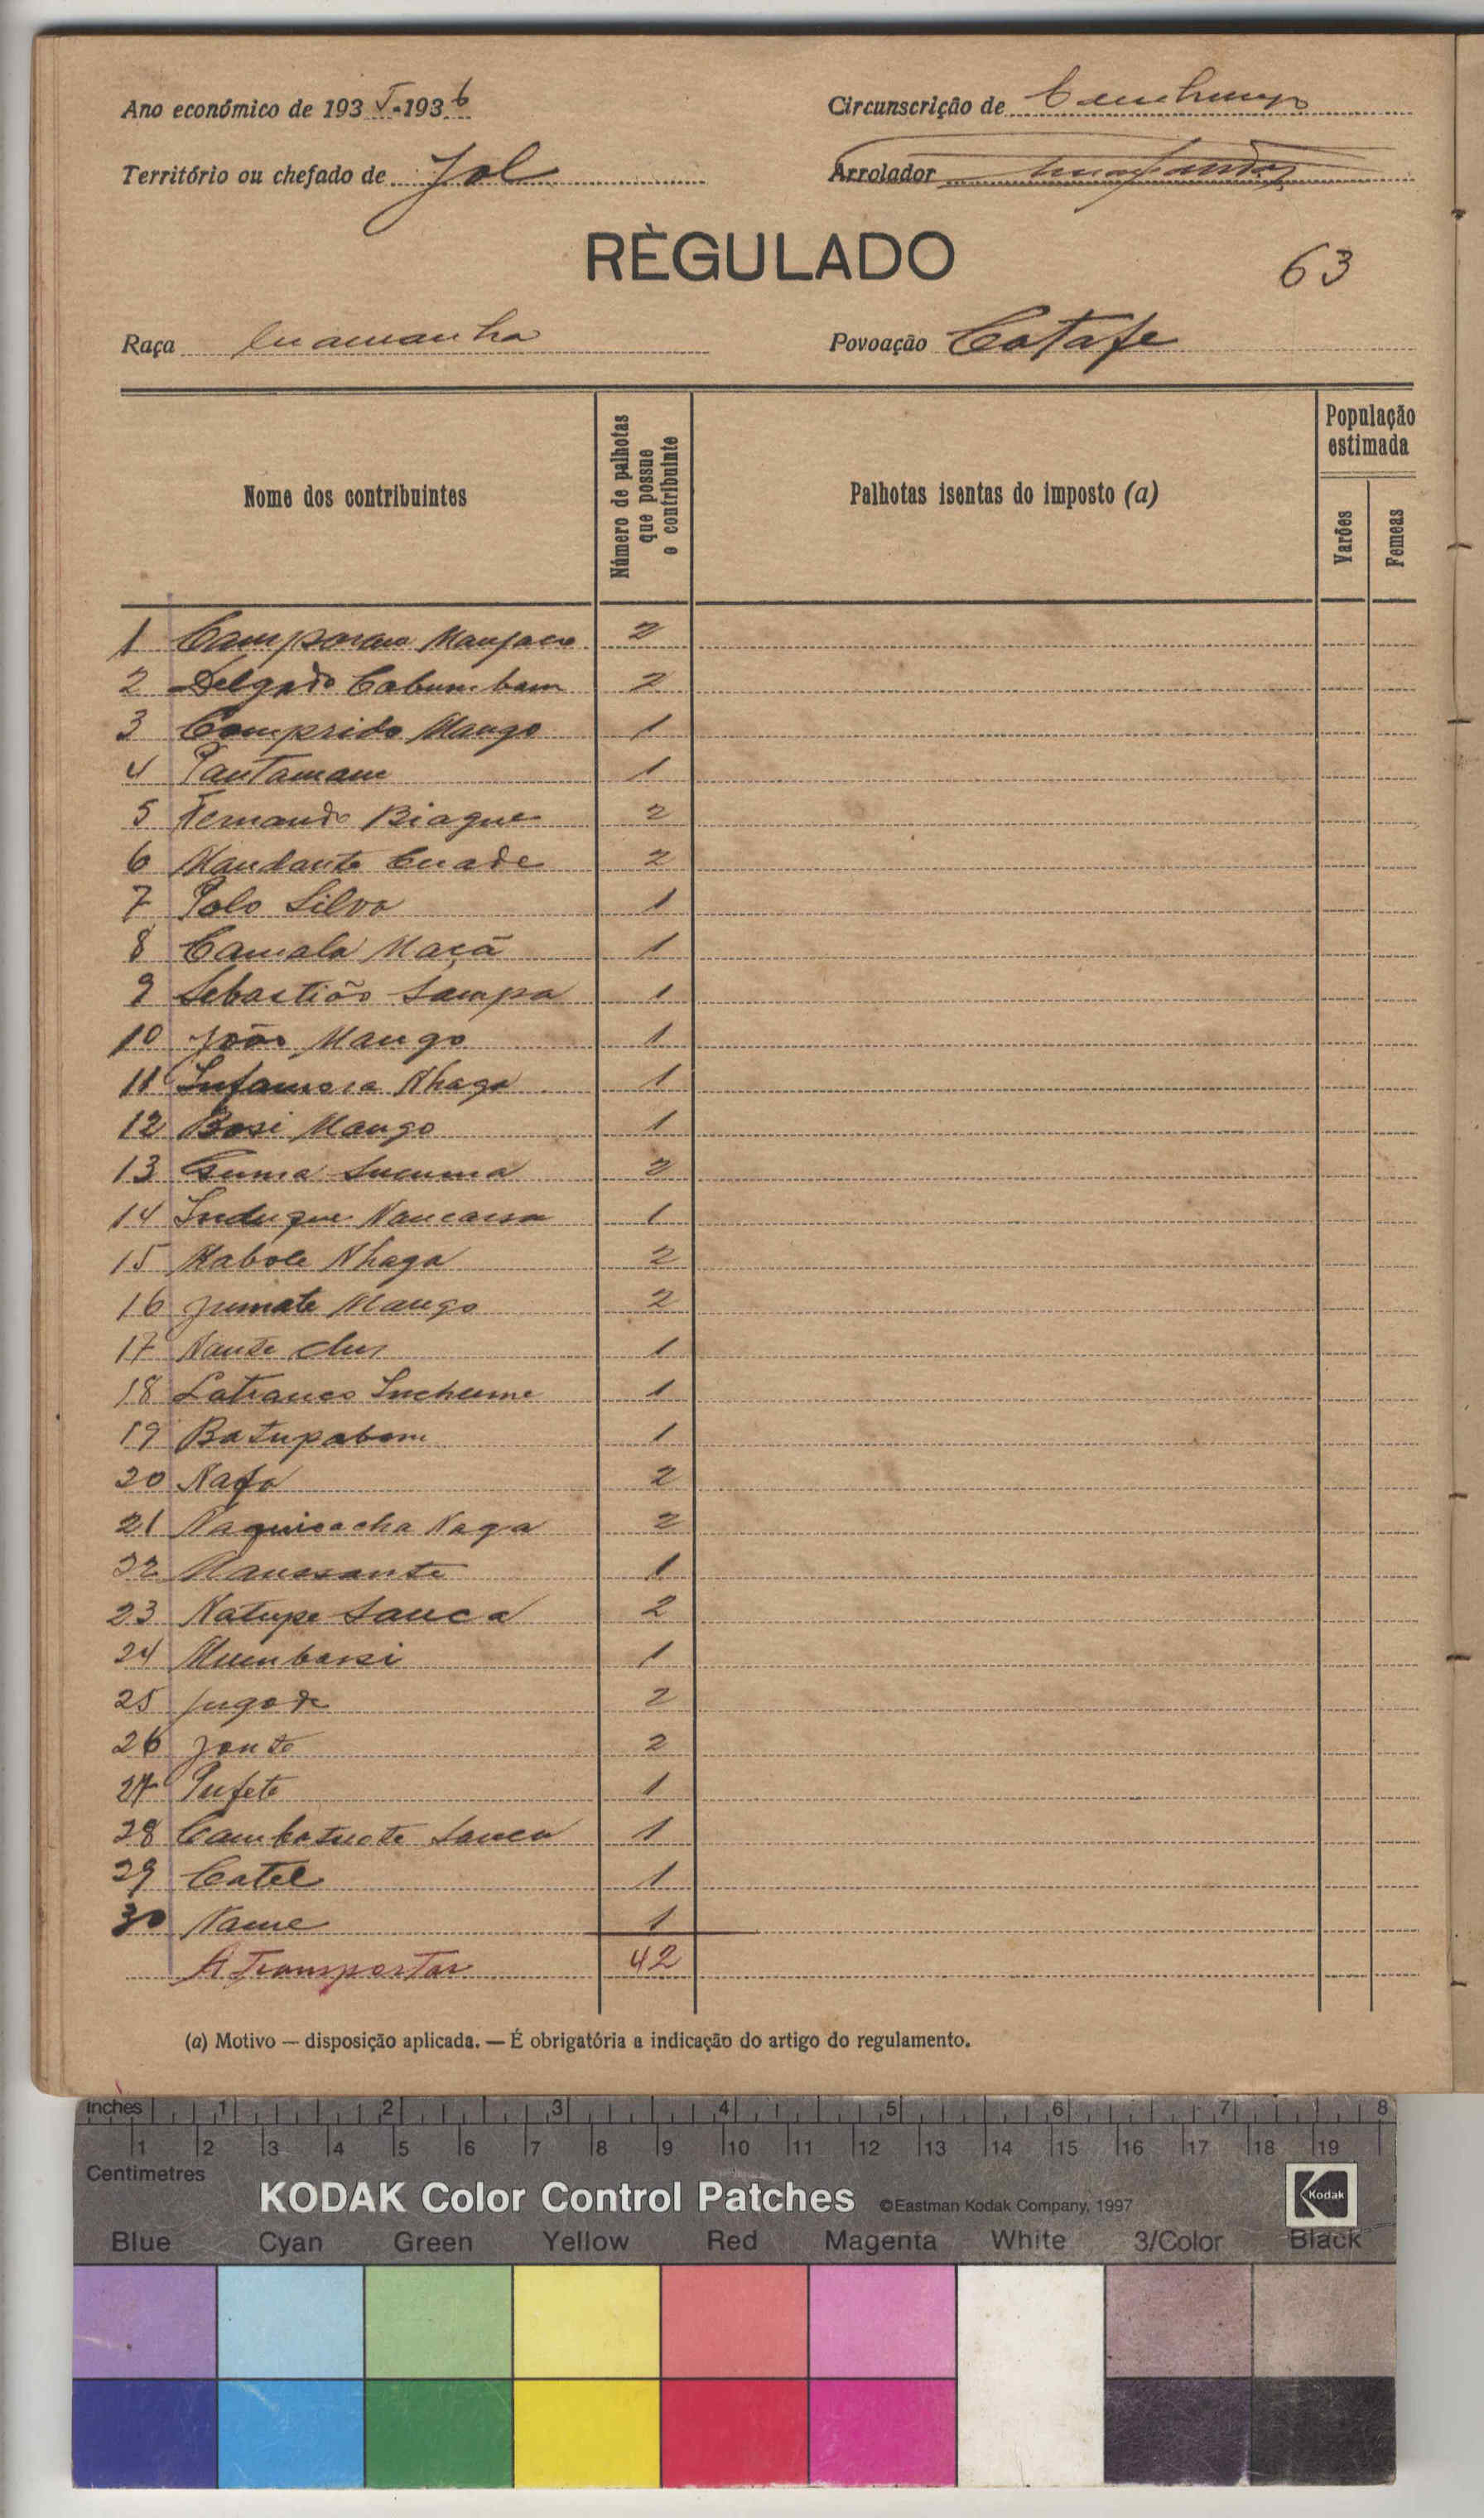 Ano económico de 1935-1936
Circunscrição de
Território ou chefado de Jol
Arrolador
RÈGULADO
63
Raça
Povoação Catafe
Nome dos contribuintes
Número de palhotas que possue o contribuinte
Palhotas isentas do imposto (a)
População estimada
Varões
Femeas
1 2
2 Delgado 2
3 Comprido Mango 1
4 1
5 Fernando Biague 2
6 2
7 Polo Silva 1
8 Camala 1
9 Sebastião Sampa 1
10 João Mango 1
11 Nhaga 1
12 Bosi Mango 1
13 2
14 Induque 1
15 Nhaga 2
16 Jumate Mango 2
17 1
18 1
19 Batupabom 1
20 Nafa 2
21 Naga 2
22 1
23 Natupe Sanca 2
24 1
25 2
26 Jonte 2
27 Pufete 1
28 Sanca 1
29 Catel 1
30 Name 1
A Transportar 42
(a) Motivo — disposição aplicada. — É obrigatória a indicação do artigo do regulamento.
Inches 1 2 3 4 5 6 7 8
1 2 3 4 5 6 7 8 9 10 11 12 13 14 15 16 17 18 19
Centimetres
KODAK Color Control Patches ©Eastman Kodak Company, 1997 Kodak
Blue Cyan Green Yellow Red Magenta White 3/Color Black